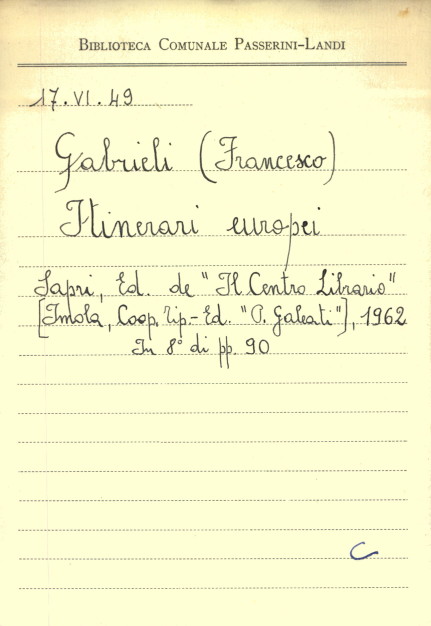 BIBLIOTECA COMUNALE PASSERINI-LANDI
17.VI.49
Gabrieli (Francesco)
Itinerari europei
Sapri, Ed. de "Il Centro Librario"
[Imola, Coop. Tip.-Ed. "P. Galeati"], 1962
In 8° di pp. 90
C